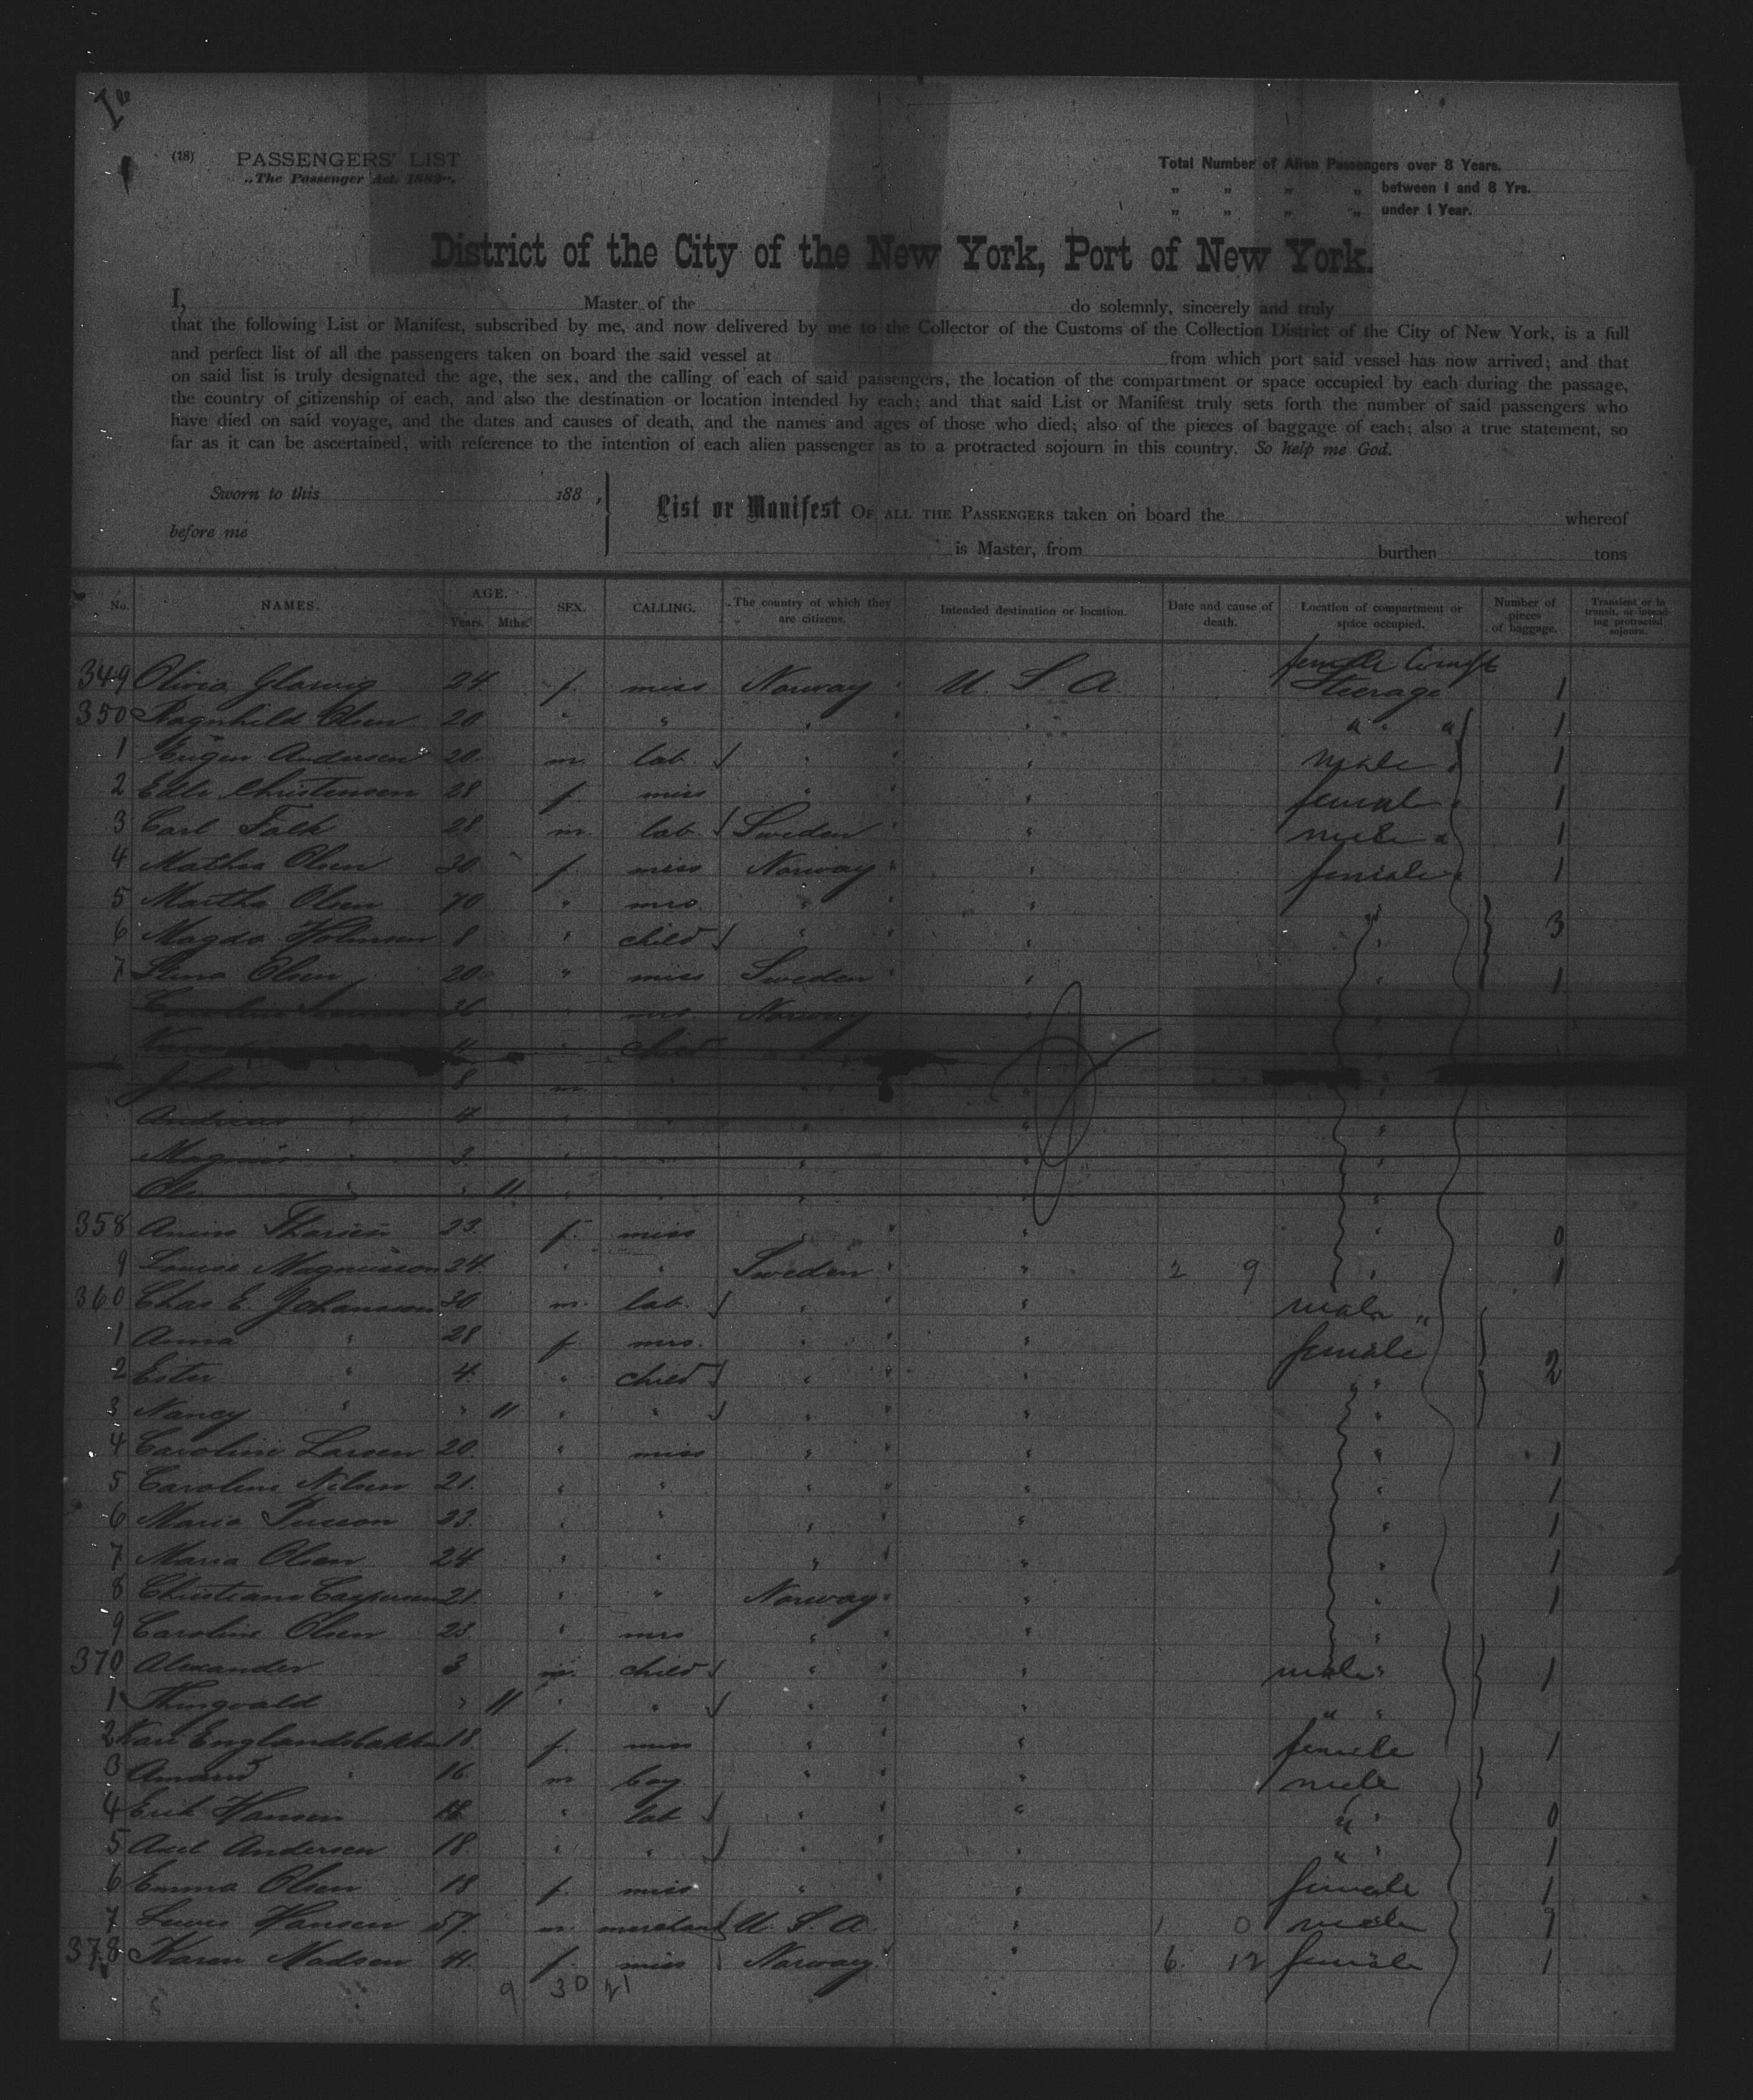 (18) PASSENGERS' LIST
„The Passenger Act, 1882".
Total Number of Alien Passengers over 8 Years.
„ „ „ „ between 1 and 8 Yrs.
„ „ „ „ under 1 Year.
District of the City of the New York, Port of New York.
I, Master of the do solemnly, sincerely and truly
that the following List or Manifest, subscribed by me, and now delivered by me to the Collector of the Customs of the Collection District of the City of New York, is a full
and perfect list of all the passengers taken on board the said vessel at from which port said vessel has now arrived; and that
on said list is truly designated the age, the sex, and the calling of each of said passengers, the location of the compartment or space occupied by each during the passage,
the country of citizenship of each, and also the destination or location intended by each; and that said List or Manifest truly sets forth the number of said passengers who
have died on said voyage, and the dates and causes of death, and the names and ages of those who died; also of the pieces of baggage of each; also a true statement, so
far as it can be ascertained, with reference to the intention of each alien passenger as to a protracted sojourn in this country. So help me God.
Sworn to this 188 ,
before me
List or Manifest OF ALL THE PASSENGERS taken on board the whereof
is Master, from burthen tons
No. NAMES. AGE. Years. Mths. SEX. CALLING. The country of which they are citizens. Intended destination or location. Date and cause of death. Location of compartment or space occupied. Number of pieces of baggage. Transient or in transit, or intending protracted sojourn.
female Compt
349 Olivia 24 f. miss Norway U. S. A. Steerage 1
350 Ragnhild Olsen 20 " " " " " " 1
1 Eugen Andersen 20 m. lab. " " male " 1
2 Christensen 28 f. miss " " female " 1
3 Carl Falk 28 m. lab. Sweden " male " 1
4 Mathea Olsen 30 f. miss Norway " female " 1
5 Martha Olsen 70 " mrs. " " "
6 Magda 8 " child " " " 3
7 Olsen 20 " miss Sweden " " 1
Caroline 36 " mrs. Norway " "
11 " child "
Johan 8 m. " " " "
Andreas " 4 " " " " "
Magnus " 3 " " " " "
Ole " " 11 " " " " "
358 23 f. miss " " " 0
9 Louise Magnusson 24 " " Sweden " 2 9 " 1
360 Chas E. Johansson 30 m. lab. " " male "
1 Anna " 28 f. mrs. " " female
2 Ester " 4 " child " " " " 2
3 Nancy " " 11 " " " " "
4 Caroline Larsen 20 " miss " " " 1
5 Caroline Nilsen 21 " " " " " 1
6 Maria 23 " " " " " 1
7 Maria Olsen 24 " " " " " 1
8 Christiane 21 " " Norway " " 1
9 Caroline Olsen 23 " mrs " " "
370 Alexander 3 m. child " " male " 1
1 Thingvald " 11 " " " " " "
2 Kari Englandsbakken 18 f. miss " " female 1
3 " 16 m boy. " " male
4 Erik Hansen 18 " lab " " " " 0
5 Axel Andersen 18 " " " " " " 1
6 Emma Olsen 18 f. miss " " female 1
7 Lewis Hansen 57 m. merchant U. S. A. " 1 0 male 9
378 Karen Madsen 41 f. miss Norway " 6 12 female 1
9 30 21